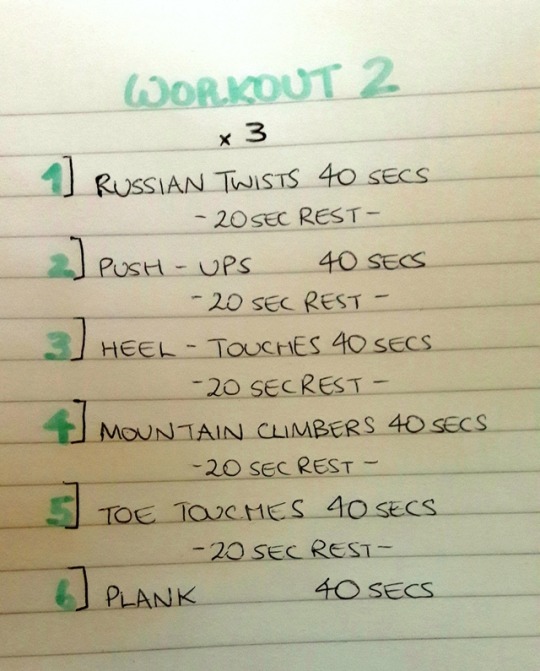 WORKOUT 2
x 3
1] RUSSIAN TWISTS 40 SECS
- 20 SEC REST -
2] PUSH - UPS 40 SECS
- 20 SEC REST -
3] HEEL - TOUCHES 40 SECS
- 20 SEC REST -
4] MOUNTAIN CLIMBERS 40 SECS
- 20 SEC REST -
5] TOE TOUCHES 40 SECS
- 20 SEC REST -
6] PLANK 40 SECS